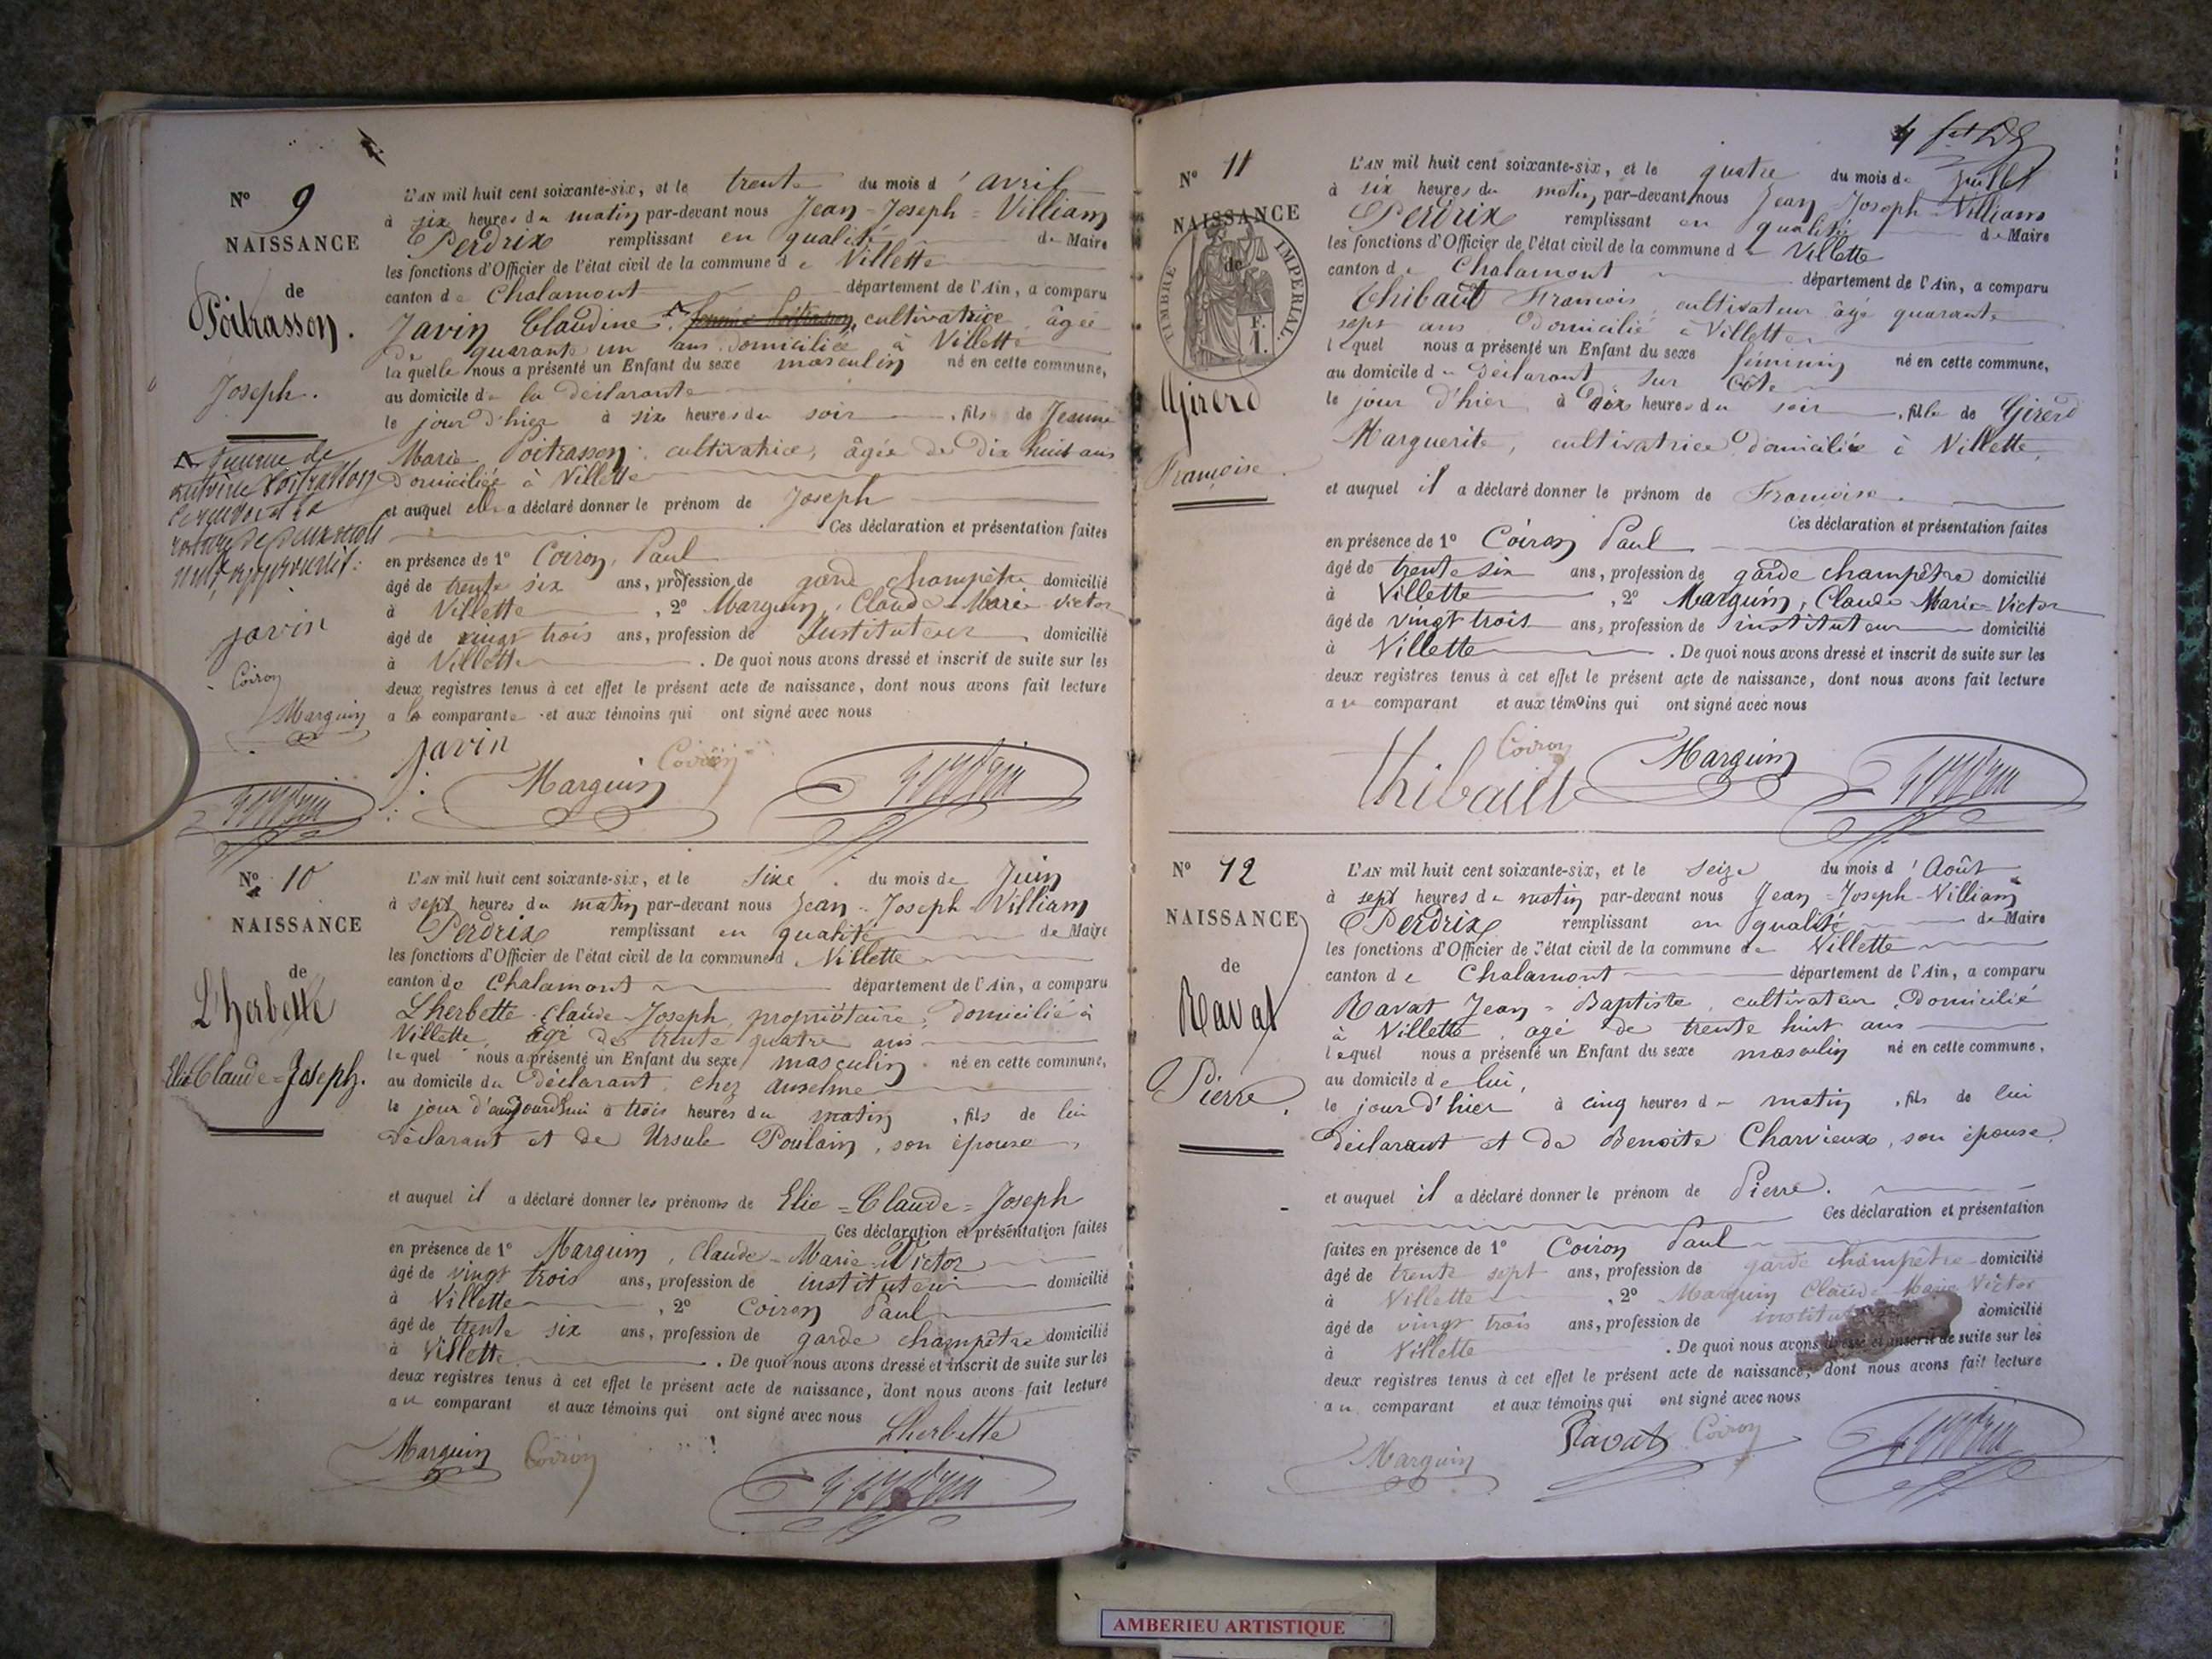 N° 9
NAISSANCE
de
Poitrasson.
Joseph.
femme de
antoine Poitrasson
rature de deux mots
nuls approuvés.
javin
Coiron
Marguin
L'AN mil huit cent soixante-six, et le trente du mois d'avril
à six heures du matin par-devant nous Jean-Joseph=Villiam
Perdrix remplissant en qualité de Maire
les fonctions d'Officier de l'état civil de la commune de Villette
canton de Chalamont département de l'Ain, a comparu
Javin Claudine femme Poitrasson, cultivatrice âgée
de quarante un ans domiciliée à Villette
laquelle nous a présenté un Enfant du sexe masculin né en cette commune,
au domicile de la déclarante
le jour d'hier à six heures du soir, fils de Jeanne
Marie Poitrasson, cultivatrice, âgée de dix huit ans
domiciliée à Villette
et auquel elle a déclaré donner le prénom de Joseph
Ces déclaration et présentation faites
en présence de 1° Coiron, Paul
âgé de trente six ans, profession de garde champêtre domicilié
à Villette, 2° Marguin, Claude-Marie-Victor
âgé de vingt trois ans, profession de Instituteur domicilié
à Villette. De quoi nous avons dressé et inscrit de suite sur les
deux registres tenus à cet effet le présent acte de naissance, dont nous avons fait lecture
a la comparante et aux témoins qui ont signé avec nous
javin
Coiron
Marguin
N° 10
NAISSANCE
de
L'herbette
Elie Claude=Joseph.
L'AN mil huit cent soixante-six, et le sixe du mois de Juin
à sept heures du matin par-devant nous Jean-Joseph-Villiam
Perdrix remplissant en qualité de Maire
les fonctions d'Officier de l'état civil de la commune d Villette
canton de Chalamont département de l'Ain, a comparu
Lherbette Claude-Joseph, propriétaire, domicilié à
Villette, âgé de trente quatre ans
lequel nous a présenté un Enfant du sexe masculin né en cette commune,
au domicile du déclarant, chez anselme
le jour d'aujourd'hui à trois heures du matin, fils de lui
déclarant et de Ursule Poulain, son épouse,
et auquel il a déclaré donner les prénoms de Elie=Claude=Joseph
Ces déclaration et présentation faites
en présence de 1° Marguin, Claude-Marie-Victor
âgé de vingt trois ans, profession de instituteur domicilié
à Villette, 2° Coiron Paul
âgé de trente six ans, profession de garde champêtre domicilié
à Villette. De quoi nous avons dressé et inscrit de suite sur les
deux registres tenus à cet effet le présent acte de naissance, dont nous avons fait lecture
au comparant et aux témoins qui ont signé avec nous
Lherbette
Marguin Coiron
N° 11
NAISSANCE
de
TIMBRE IMPERIAL.
Girerd
Françoise.
L'AN mil huit cent soixante-six, et le quatre du mois de Juillet
à six heures du matin par-devant nous Jean Joseph-Villiam
Perdrix remplissant en qualité de Maire
les fonctions d'Officier de l'état civil de la commune de Villette
canton de Chalamont département de l'Ain, a comparu
Thibaut François, cultivateur âgé quarante
sept ans domicilié à Villette
lequel nous a présenté un Enfant du sexe féminin né en cette commune,
au domicile du déclarant sur Côte
le jour d'hier à dix heures du soir, fille de Girerd
Marguerite, cultivatrice domiciliée à Villette,
et auquel il a déclaré donner le prénom de Françoise.
Ces déclaration et présentation faites
en présence de 1° Coiron Paul
âgé de trente six ans, profession de garde champêtre domicilié
à Villette, 2° Marguin, Claude-Marie-Victor
âgé de vingt trois ans, profession de instituteur domicilié
à Villette. De quoi nous avons dressé et inscrit de suite sur les
deux registres tenus à cet effet le présent acte de naissance, dont nous avons fait lecture
au comparant et aux témoins qui ont signé avec nous
Coiron
Thibault Marguin
N° 12
NAISSANCE
de
Ravat
Pierre.
L'AN mil huit cent soixante-six, et le seize du mois d'Août
à sept heures du matin par-devant nous Jean=Joseph-Villiam
Perdrix remplissant en qualité de Maire
les fonctions d'Officier de l'état civil de la commune de Villette
canton de Chalamont département de l'Ain, a comparu
Ravat Jean=Baptiste, cultivateur, domicilié
à Villette, agé de trente huit ans
lequel nous a présenté un Enfant du sexe masculin né en cette commune,
au domicile de lui,
le jour d'hier à cinq heures du matin, fils de lui
déclarant et de Benoite Charvieux, son épouse,
et auquel il a déclaré donner le prénom de Pierre.
Ces déclaration et présentation
faites en présence de 1° Coiron Paul
âgé de trente sept ans, profession de garde champêtre domicilié
à Villette, 2° Marguin Claude Marie Victor
âgé de vingt trois ans, profession de domicilié
à Villette. De quoi nous avons dressé et inscrit de suite sur les
deux registres tenus à cet effet le présent acte de naissance, dont nous avons fait lecture
au comparant et aux témoins qui ont signé avec nous
Marguin Ravat Coiron
AMBERIEU ARTISTIQUE